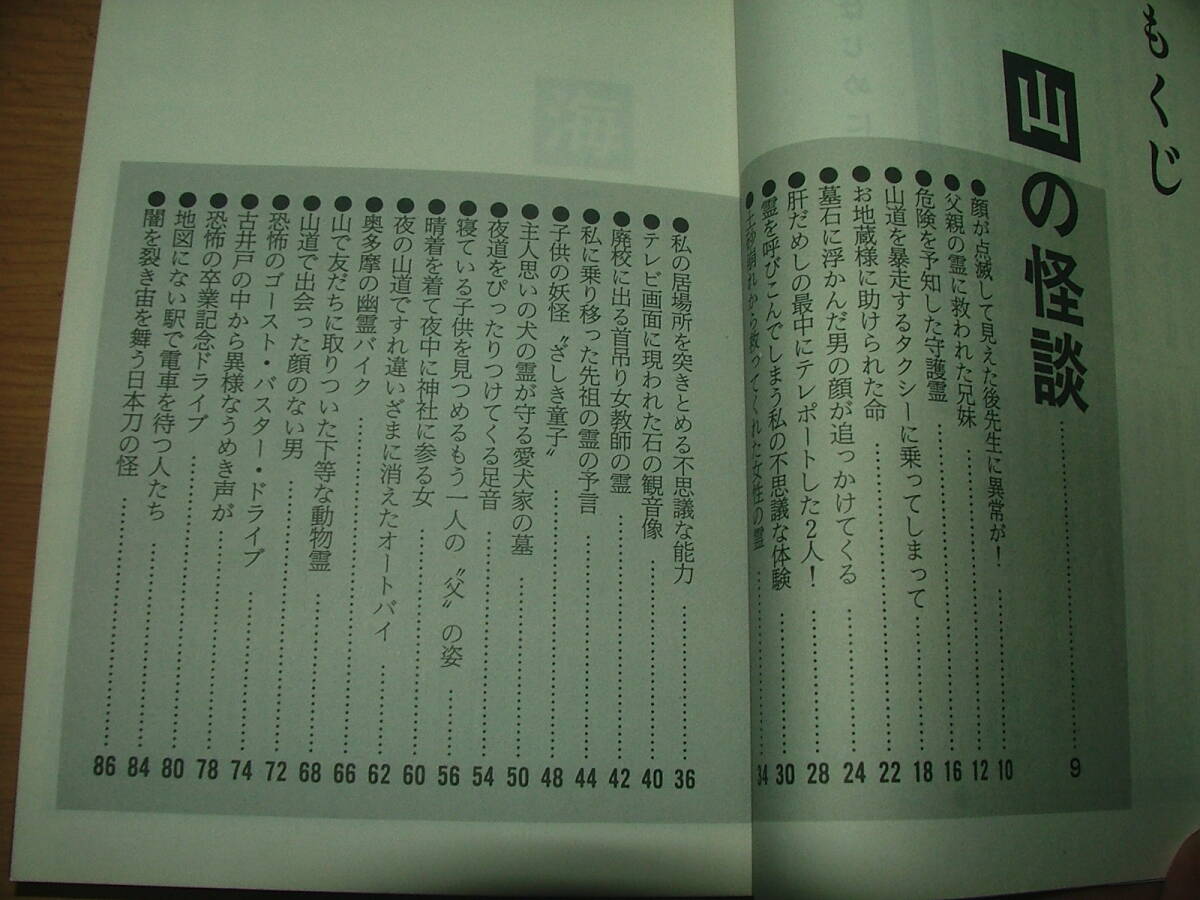 もくじ
山の怪談……9
●顔が点滅して見えた後先生に異常が！……10
●父親の霊に救われた兄妹……12
●危険を予知した守護霊……16
●山道を暴走するタクシーに乗ってしまって……18
●お地蔵様に助けられた命……22
●墓石に浮かんだ男の顔が追っかけてくる……24
●肝だめしの最中にテレポートした2人！……28
●霊を呼びこんでしまう私の不思議な体験……30
●土砂崩れから救ってくれた女性の霊……34
●私の居場所を突きとめる不思議な能力……36
●テレビ画面に現われた石の観音像……40
●廃校に出る首吊り女教師の霊……42
●私に乗り移った先祖の霊の予言……44
●子供の妖怪〝ざしき童子〟……48
●主人思いの犬の霊が守る愛犬家の墓……50
●夜道をぴったりつけてくる足音……54
●寝ている子供を見つめるもう一人の〝父〟の姿……56
●晴着を着て夜中に神社に参る女……60
●夜の山道ですれ違いざまに消えたオートバイ……62
●奥多摩の幽霊バイク……66
●山で友だちに取りついた下等な動物霊……68
●山道で出会った顔のない男……72
●恐怖のゴースト・バスター・ドライブ……74
●古井戸の中から異様なうめき声が……78
●恐怖の卒業記念ドライブ……80
●地図にない駅で電車を待つ人たち……84
●闇を裂き宙を舞う日本刀の怪……86
はじめに
海